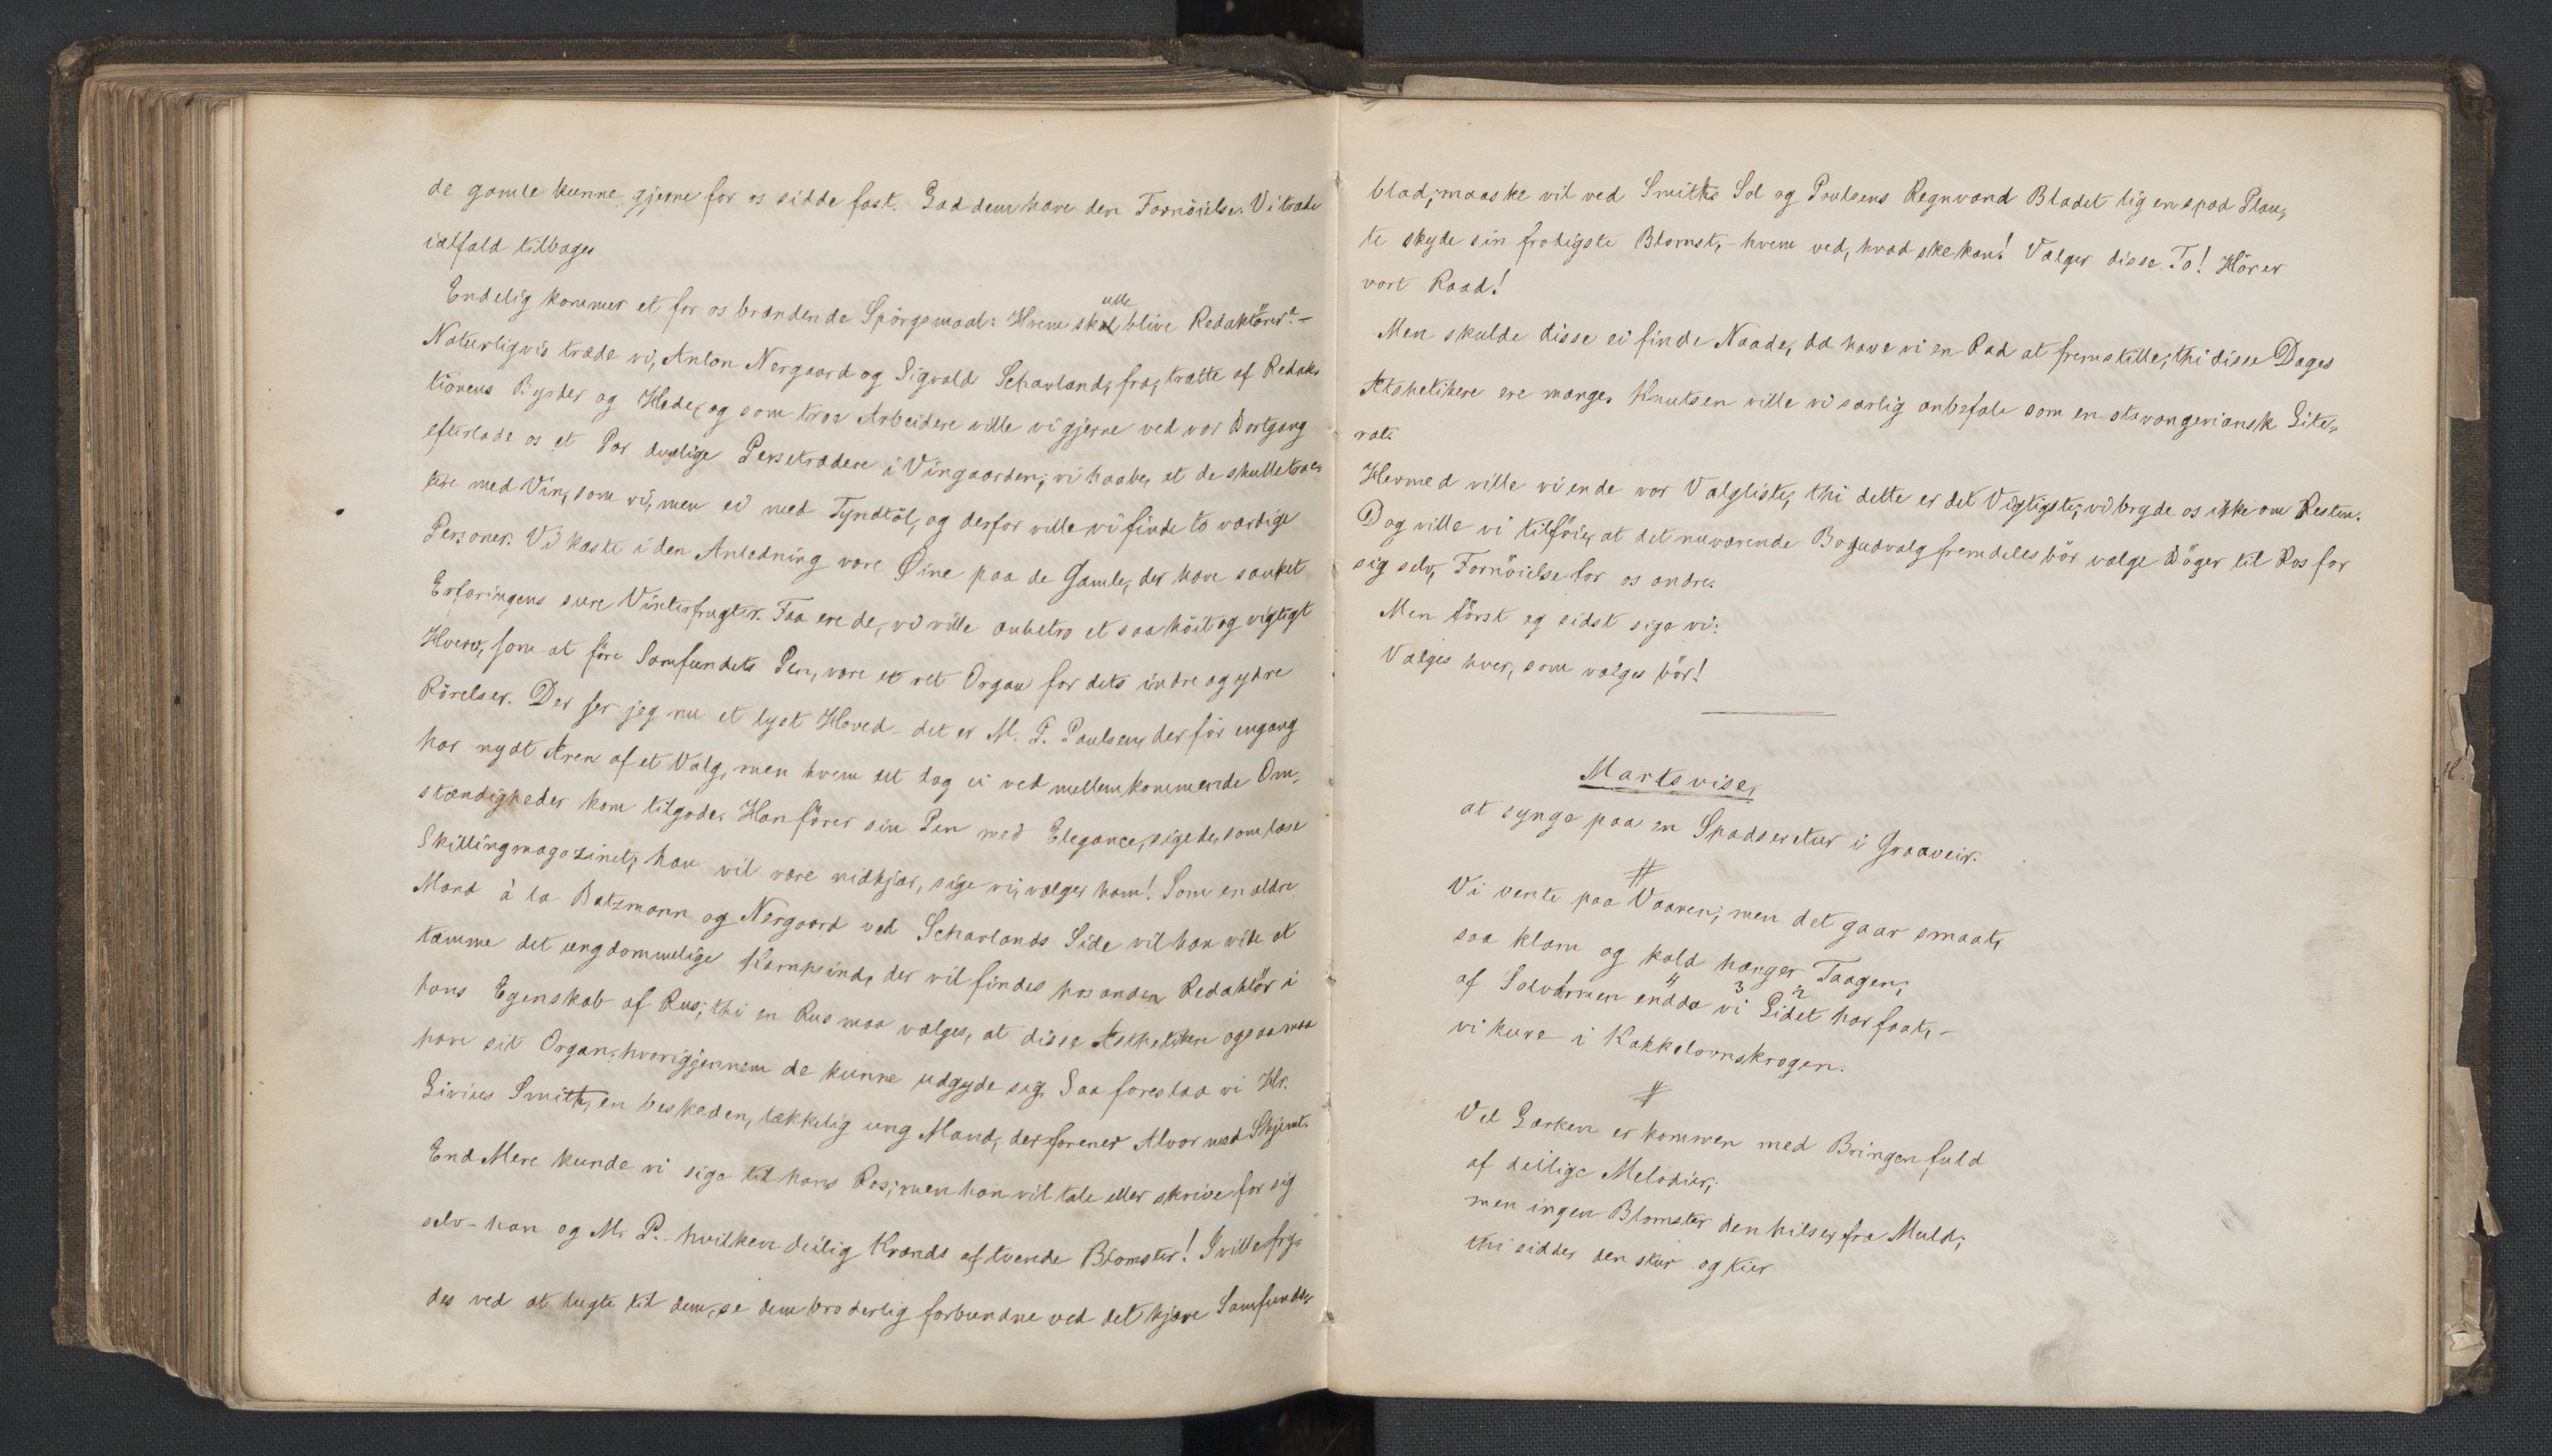 de gamle kunne gjerne for os sidde fast. Lad dem have den Fornöielse. Vi træde
ialfald tilbage.
Endelig kommer et for os brændende Spörgsmaal: Hvem skulle blive Redaktörer? –
Naturligvis træde vi, Anton Nergaard og Sigvald Schavland, fra, trætte af Redak-
tionens Byrder og Hede, og som troe Arbeidere ville vi gjerne ved vor Bortgang
efterlade os et Par duelige Persetrædere i Vingaarden; vi haabe, at de skulle trac-
tere med Vin, som vi, men ei med Tyndtöl, og derfor ville vi finde to værdige
Personer. Vi kaste i den Anledning vore Øine paa de Gamle, der have sanket
Erfaringens sure Vinterfrugter. Faa ere de, vi ville anbetro et saa höit og vigtigt
Hverv, som at före Samfundets Pen, være et ret Organ for dets indre og ydre
Rörelser. Der ser jeg nu et lyst Hoved – det er M. P. Paulsen, der för engang
har nydt Æren af et Valg, men hvem det dog ei ved mellemkommende Om-
stændigheder kom tilgode. Han förer sin Pen med Elegance, sige de, som læse
Skillingmagazinet; han vil være nidkjær, sige vi; vælger ham! Som en ældre
Mand à la Batzmann og Nergaard ved Schavlands Side vil han vide at
tæmme det ungdommelige Kampsind, der vil findes hos anden Redaktör i
hans Egenskab af Rus; thi en Rus maa vælges, at disse Æsthetikere ogsaa maa
have sit Organ, hvorigjennem de kunne udgyde sig. Saa foreslaa vi Hr.
Livius Smith, en beskeden, tækkelig ung Mand, der forener Alvor med Skjemt.
End Mere kunde vi sige til hans Ros; men han vil tale eller skrive for sig
selv – han og M. P. – hvilken deilig Krands af tvende Blomster! I ville fry-
des ved at lugte til dem, se dem broderlig forbundne ved det kjære Samfunds-
blad; maaske vil ved Smiths Sol og Paulsens Regnvand Bladet lig en spæd Plan-
te skyde sin frodigste Blomst, – hvem ved, hvad ske kan! Vælger disse To! Hörer
vort Raad!
Men skulde disse ei finde Naade, da have vi en Rad at fremstille; thi disse Dages
Æsthetikere ere mange. Knutsen ville vi særlig anbefale som en stavangeriansk Lite-
rat.
Hermed ville vi ende vor Valgliste; thi dette er det Vigtigste; vi bryde os ikke om Resten.
Dog ville vi tilföie, at det nuværende Bogudvalg fremdeles bör vælge Böger til Ros for
sig selv, Fornöielse for os andre.
Men först og sidst sige vi:
Vælges hver, som vælges bör!
Martsvise,
at synge paa en Spadseretur i Graaveir.
#
Vi vente paa Vaaren; men det gaar smaat,
saa klam og kold hænger Taagen;
4 3 2
af Solvarmen endda vi Lidet har faat, –
vi kure i Kakkelovnskrogen.
#
Vel Lærken er kommen med Bringen fuld
af deilige Melodier;
men ingen Blomster den hilser fra Muld;
thi sidder den stur og tier